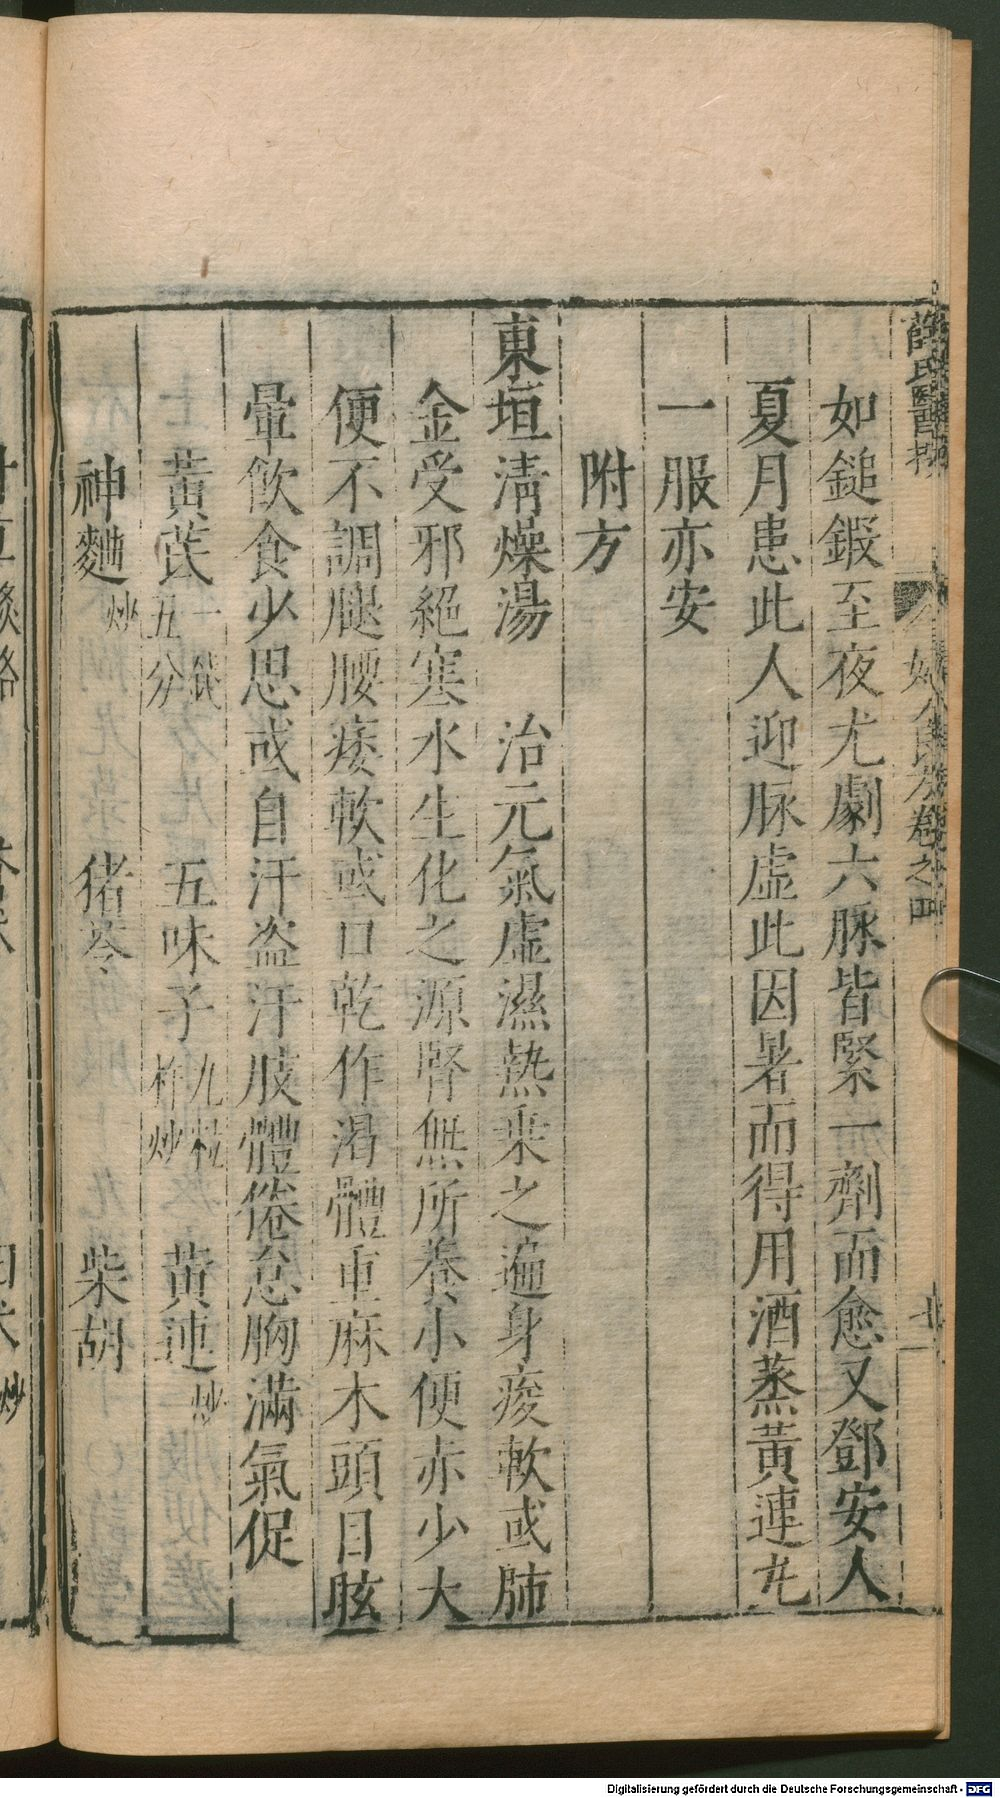 薛氏醫按
婦人良方卷之四
如鎚鍜至夜尤劇六脉皆緊一劑而愈又鄧安人
夏月患此人迎脉虛此因暑而得用酒蒸黃連丸
一服亦安
附方
東垣清燥湯 治元氣虛濕熱乘之遍身痠軟或肺
金受邪絕寒水生化之源腎無所養小便赤少大
便不調腿腰痿軟或口乾作渴體重麻木頭目眩
暈飲食少思或自汗盗汗肢體倦怠胸滿氣促
黃茋一錢五分 五味子九粒杵炒 黃連炒
神麯炒 猪苓 柴胡
Digitalisierung gefördert durch die Deutsche Forschungsgemeinschaft - DFG